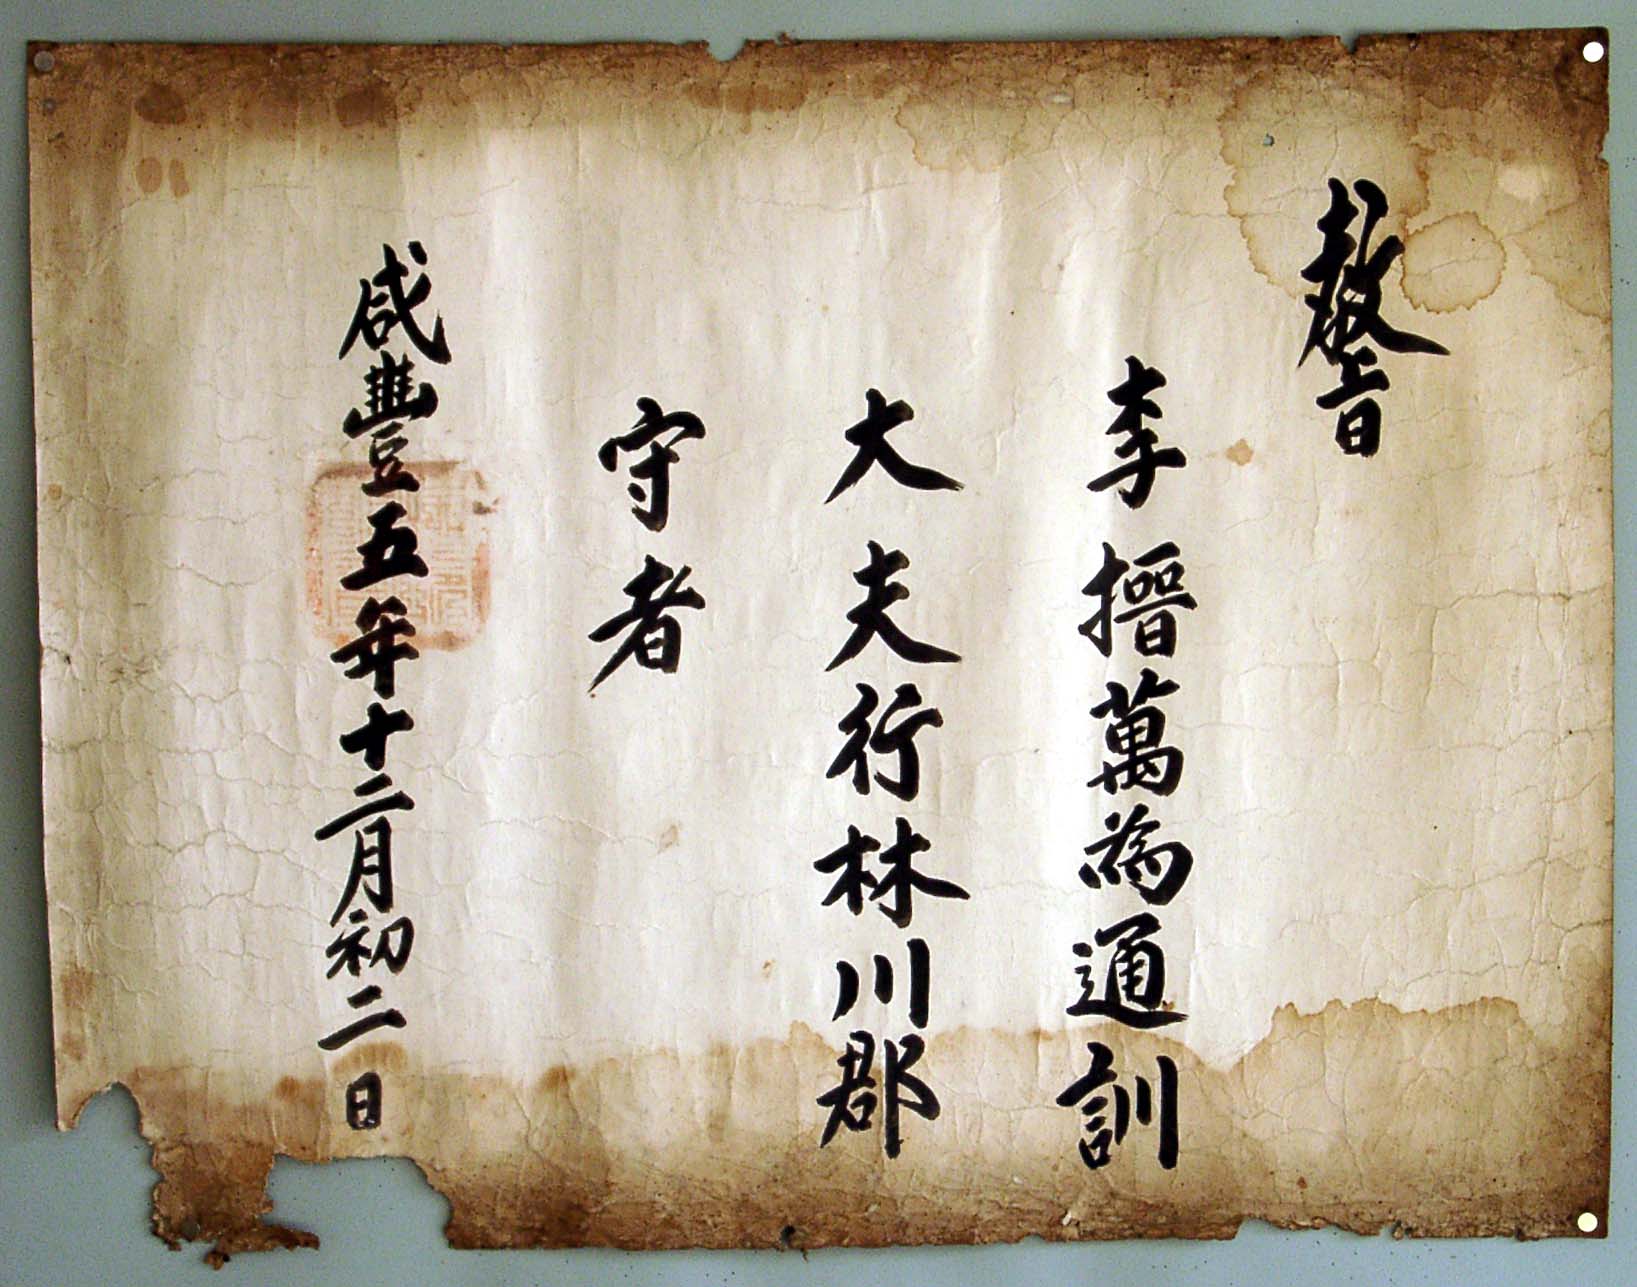 敎旨
李搢萬為通訓
大夫行林川郡
守者
咸豐五年十二月初二日